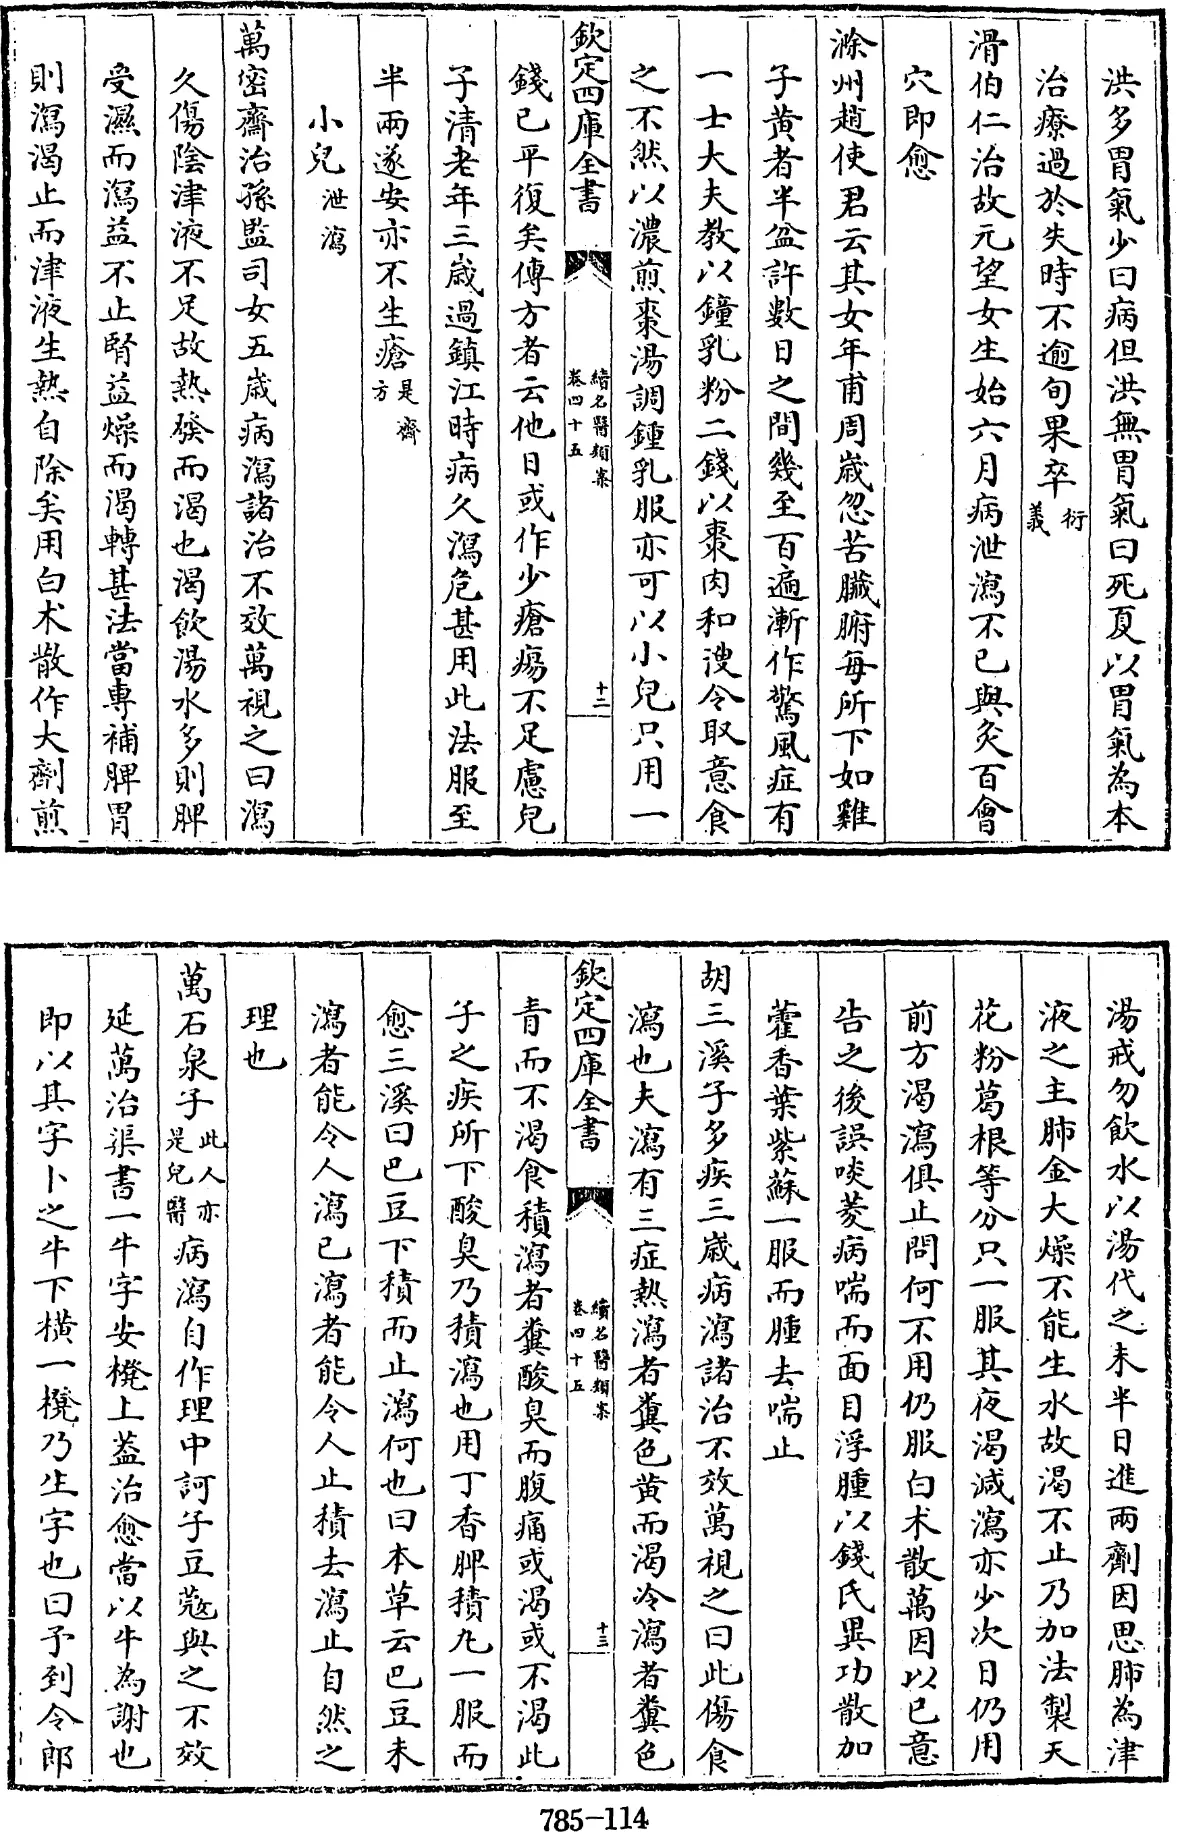 洪多胃氣少曰病但洪無胃氣曰死夏以胃氣為本
治療過於失時不逾旬果卒衍義
滑伯仁治故元望女生始六月病泄瀉不已與灸百會
穴即愈
滁州趙使君云其女年甫周歲忽苦臟腑每所下如雞
子黄者半盆許數日之間幾至百遍漸作驚風症有
一士大夫教以鐘乳粉二錢以棗肉和溲令取意食
之不然以濃煎棗湯調鍾乳服亦可以小兒只用一
欽定四庫全書
續名醫類案
卷四十五
十二
錢已平復矣傳方者云他日或作少瘡瘍不足慮兒
子清老年三歲過鎮江時病久瀉危甚用此法服至
半兩遂安亦不生瘡是齋方
小兒泄瀉
萬密齋治孫監司女五歲病瀉諸治不效萬視之曰瀉
久傷陰津液不足故熱發而渴也渴飲湯水多則脾
受濕而瀉益不止腎益燥而渴轉甚法當專補脾胃
則瀉渴止而津液生熱自除矣用白术散作大劑煎
湯戒勿飲水以湯代之未半日進兩劑因思肺為津
液之主肺金大燥不能生水故渴不止乃加法製天
花粉葛根等分只一服其夜渴減瀉亦少次日仍用
前方渴瀉俱止問何不用仍服白术散萬因以已意
告之後誤啖菱病喘而面目浮腫以錢氏異功散加
藿香葉紫蘇一服而腫去喘止
胡三溪子多疾三歲病瀉諸治不效萬視之曰此傷食
瀉也夫瀉有三症熱瀉者糞色黄而渴冷瀉者糞色
欽定四庫全書
續名醫類案
卷四十五
十三
青而不渴食積瀉者糞酸臭而腹痛或渴或不渴此
子之疾所下酸臭乃積瀉也用丁香脾積丸一服而
愈三溪曰巴豆下積而止瀉何也曰本草云巴豆未
瀉者能令人瀉已瀉者能令人止積去瀉止自然之
理也
萬石泉子此人亦是兒醫病瀉自作理中訶子豆蔻與之不效
延萬治渠書一牛字安櫈上葢治愈當以牛為謝也
即以其字卜之牛下橫一櫈乃生字也曰予到令郎
785-114